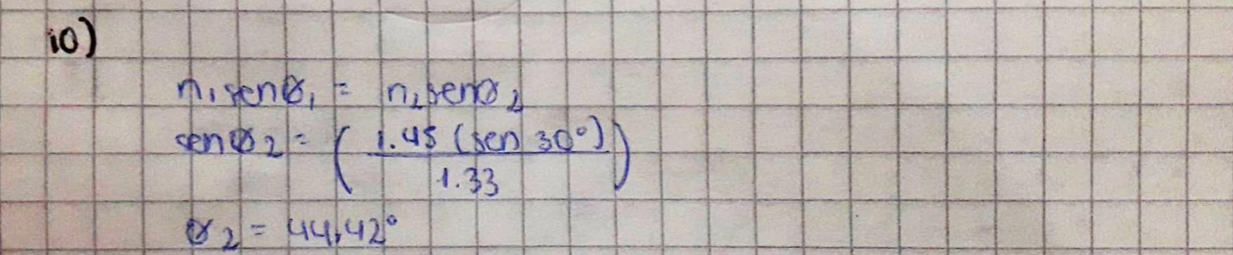 10)
n₁senθ₁ = n₂senθ₂
senθ₂ = (1.45 (sen 30°) / 1.33)
θ₂ = 44,42°